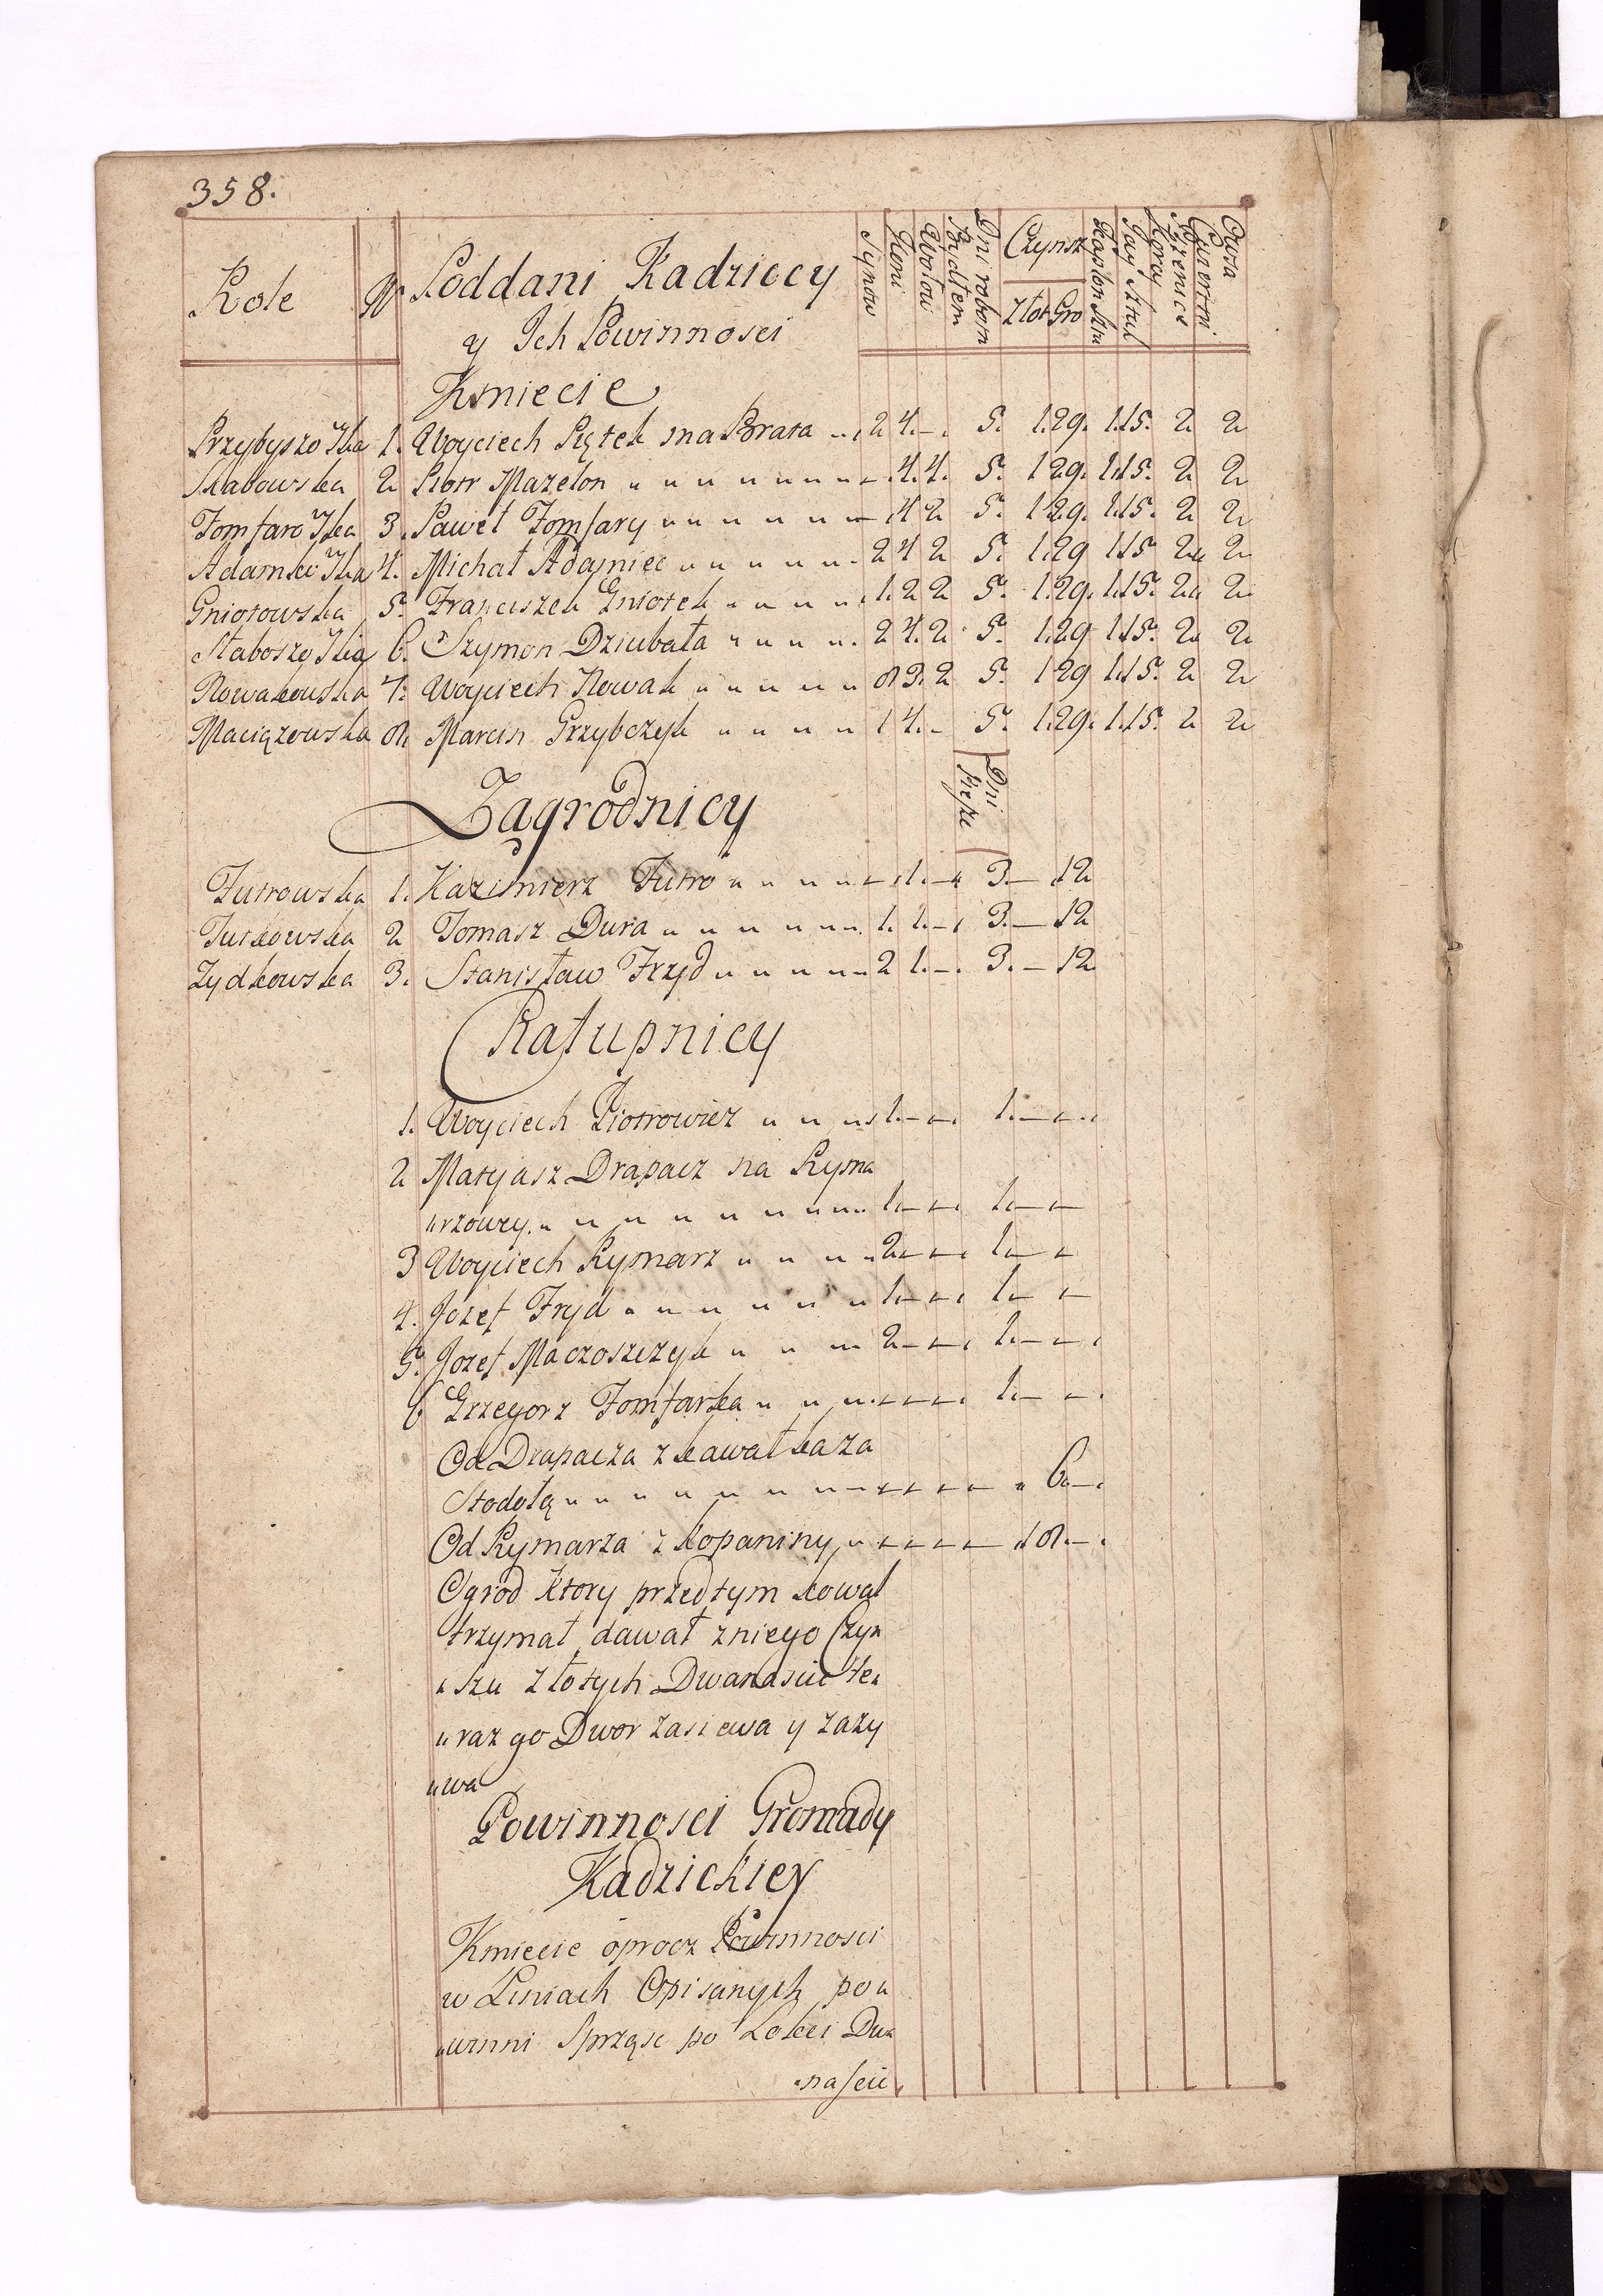 358.
Role Nr Poddani Kadziccy Synow Koni Wołow Dni robom Bydłem Czynsz Kapłon Sztu Jay Sztuk Kory Pszenice Cwiertni Owsa
y Ich Powinnosci Złot Gro
Kmiecie
Przybyszowska 1. Woyciech Piątek sna Brata 2 4. — 5. 1. 29. 1. 15. 2 2
Skabowska 2 Piotr Mazelon — 4. 4. 5. 1 29. 1. 15. 2 2
Fomfarowska 3. Paweł Fomfary — 4 2 5. 1 29. 1. 15. 2 2
Adamskowska 4. Michał Adamiec 2 4 2 5. 1. 29 1. 15 2 2
Gniotowska 5. Franciszek Gniotek 1. 2 2 5. 1. 29. 1. 15. 2 2
Staboszowska 6. Szymon Dziubała 2 4. 2 5. 1. 29 1. 15. 2 2
Nowakowska 7. Woyciech Nowak 3. 2 5. 1 29 1. 15. 2 2
Maciązowska 8. Marcin Grzybczyk 1 4. — 5. 1. 29. 1. 15. 2 2
Dni Piesze
Zagrodnicy
Futrowska 1. Kazimierz Futro — 1. — 3. — 12
Jurkowska 2 Tomasz Dura 1. 1. — 3. — 12
Zydkowska 3. Stanisław Fryd 2 1. — 3. — 12
Chałupnicy
1. Woyciech Piotrowicz 1. — — 1. — —
2 Matyasz Drapacz na Ryma
rzowzy. 1. — — 1. — —
3 Woyciech Rymarz 2 — — 1. — —
4. Jozef Fryd 1. — — 1. — —
5. Jozef Maczoszczyk 2 — — 1. — —
6 Grzegorz Fomfarka — — — 1. — —
Od Drapacza z kawałka za
Stodołą — — — — 6. —
Od Rymarza z kopaniny — — — — 18. —
Ogrod Ktory przedtym kowal
trzymał dawał zniego Czyn
szu Złotych Dwanascie te
raz go Dwor zasiewa y zazy
wa
Powinnosci Gromady
Kadzickiey
Kmiecie oprocz Powinnosci
w Liniach Opisanych po
winni Sprząsc po Łokci Dwa
nascie